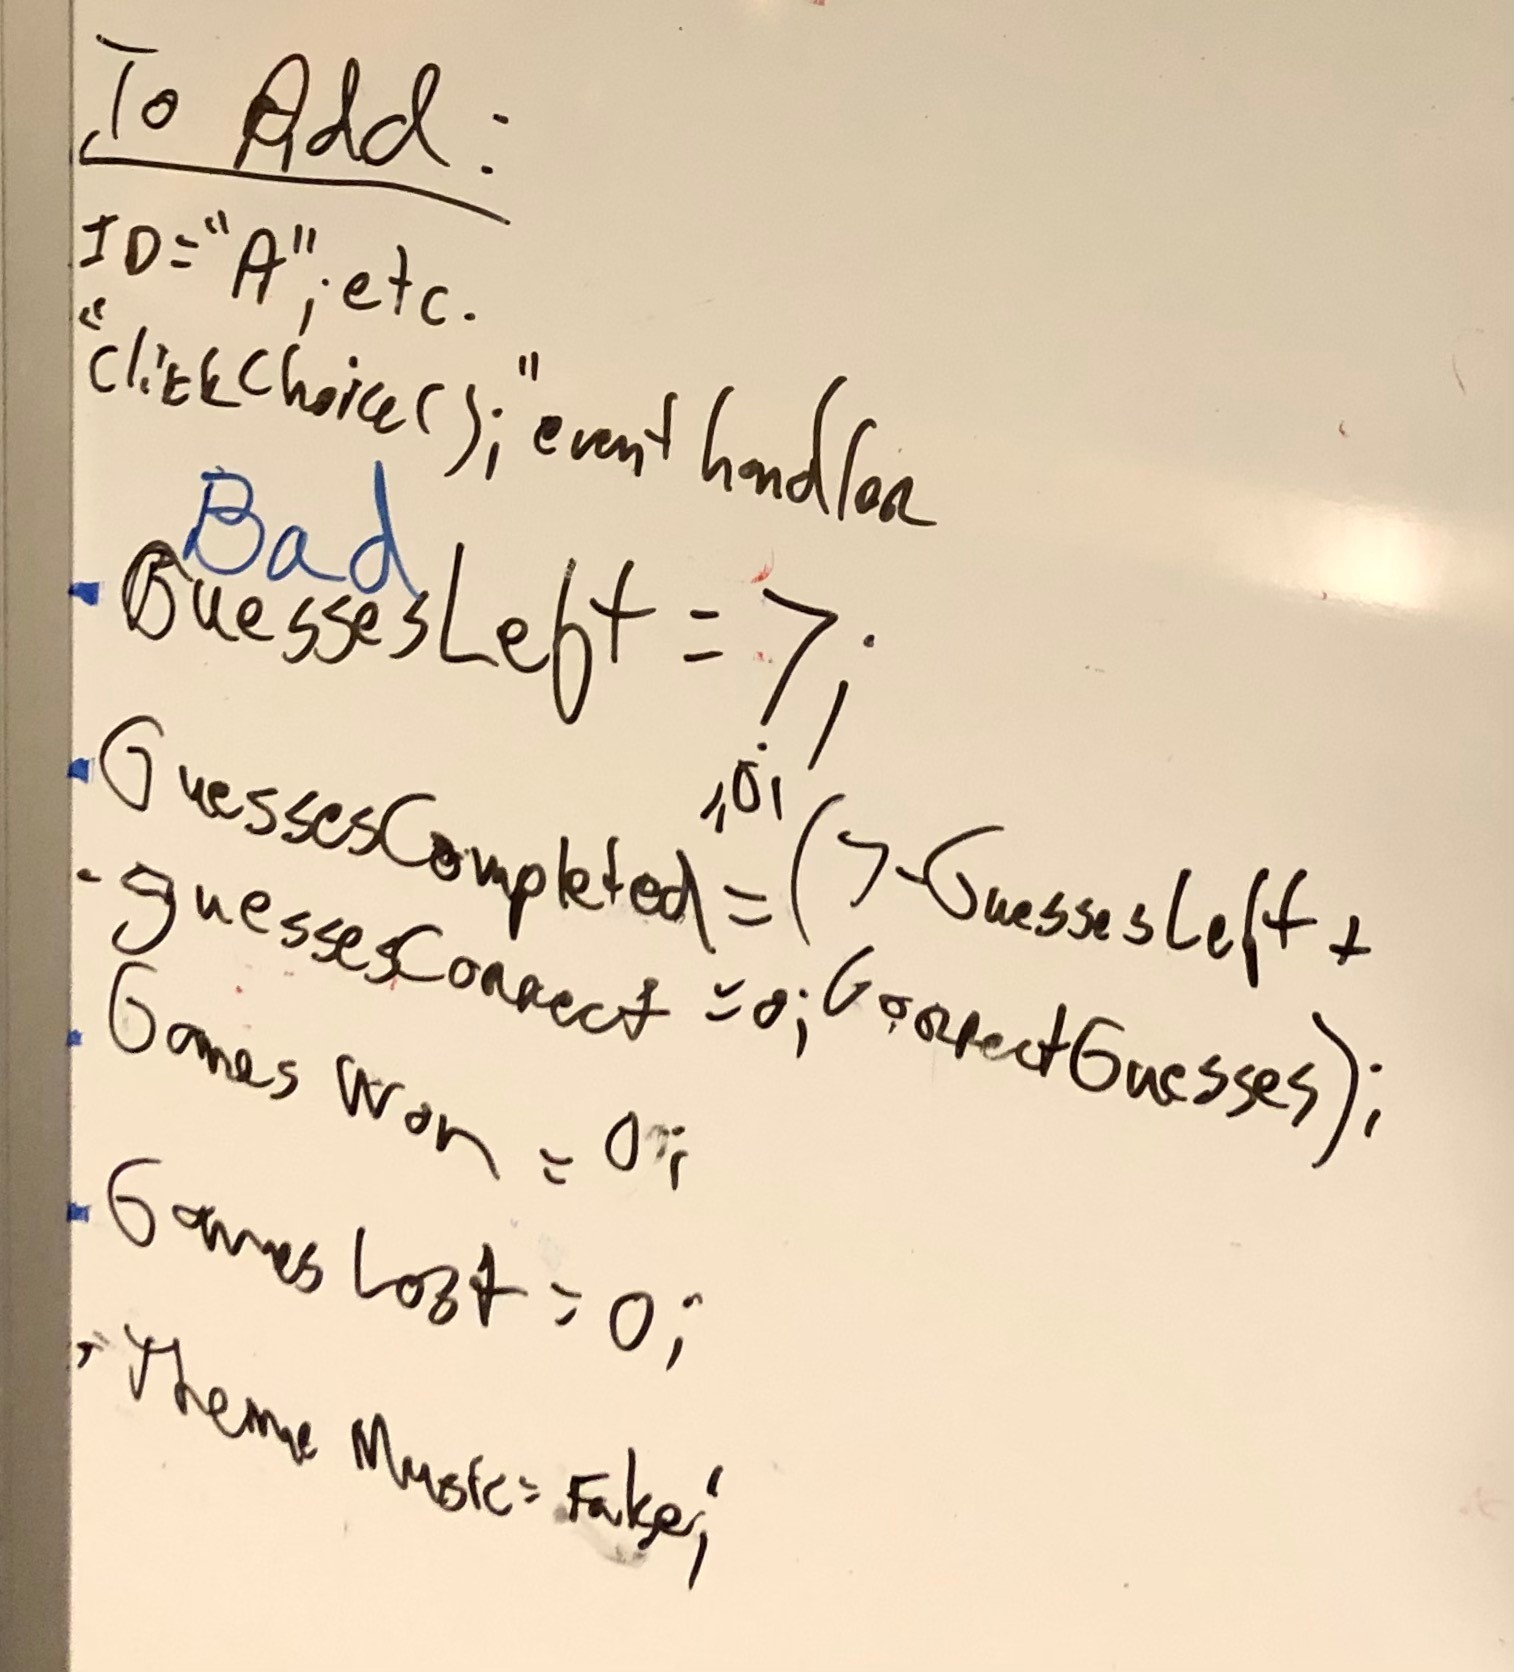 To Add:
ID="A"; etc.
"clickChoice();" event handler
Bad
• GuessesLeft = 7;
• GuessesCompleted = (7-GuessesLeft +
CorrectGuesses);
- guessesCorrect = 0;
• Games Won = 0;
• Games Lost = 0;
Theme Music = Fake;